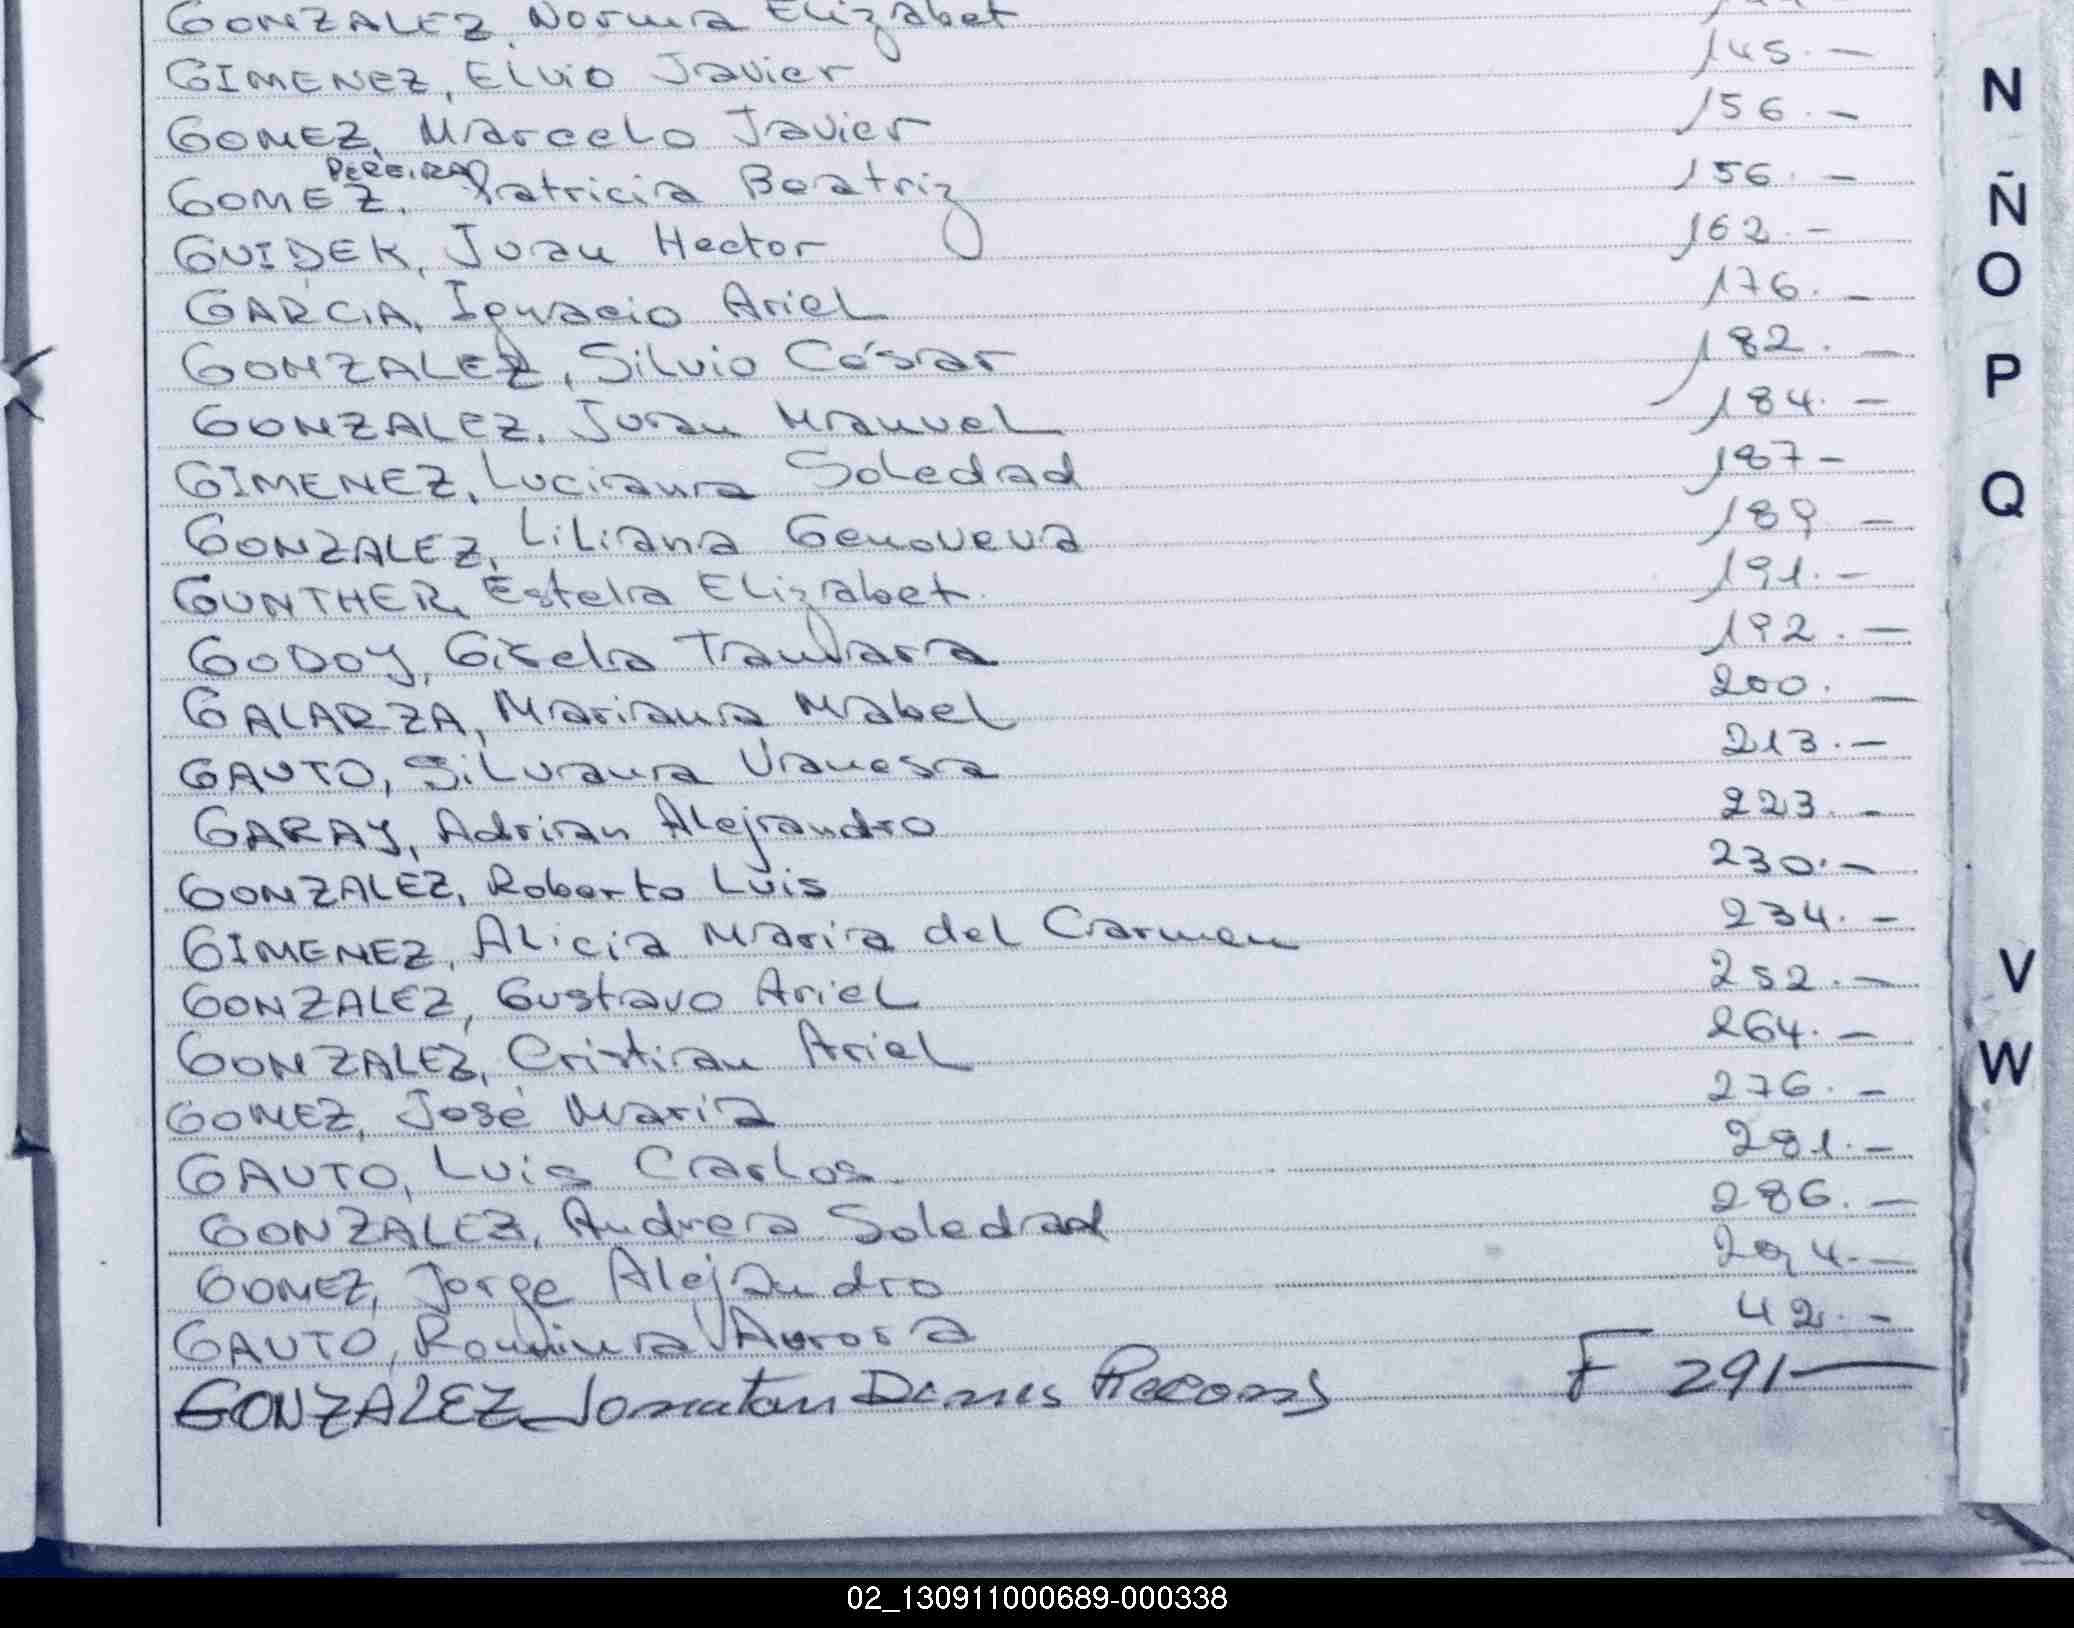 GONZALEZ, Norma Elizabet
GIMENEZ, Elvio Javier 145.-
GOMEZ, Marcelo Javier 156.-
PEREIRA
GOMEZ, Patricia Beatriz 156.-
GUIDEK, Juan Hector 162.-
GARCIA, Ignacio Ariel 176.-
GONZALEZ, Silvio César 182.-
GONZALEZ, Juan Manuel 184.-
GIMENEZ, Luciana Soledad 187-
GONZALEZ, Liliana Genoveva 189-
GUNTHER, Estela Elizabet 191.-
GODOY, Gisela Tamara 192.-
GALARZA, Mariana Mabel 200.-
GAUTO, Silvana Vanesa 213.-
GARAY, Adrian Alejandro 223.-
GONZALEZ, Roberto Luis 230.-
GIMENEZ, Alicia Maria del Carmen 234.-
GONZALEZ, Gustavo Ariel 252.-
GONZALEZ, Cristian Ariel 264.-
GOMEZ, José Maria 276.-
GAUTO, Luis Carlos 281.-
GONZALEZ, Andrea Soledad 286.-
GOMEZ, Jorge Alejandro 294.-
GAUTO, Romina Aurora 42.-
GONZALEZ Jonatan F 291-
N
Ñ
O
P
Q
V
W
02_130911000689-000338